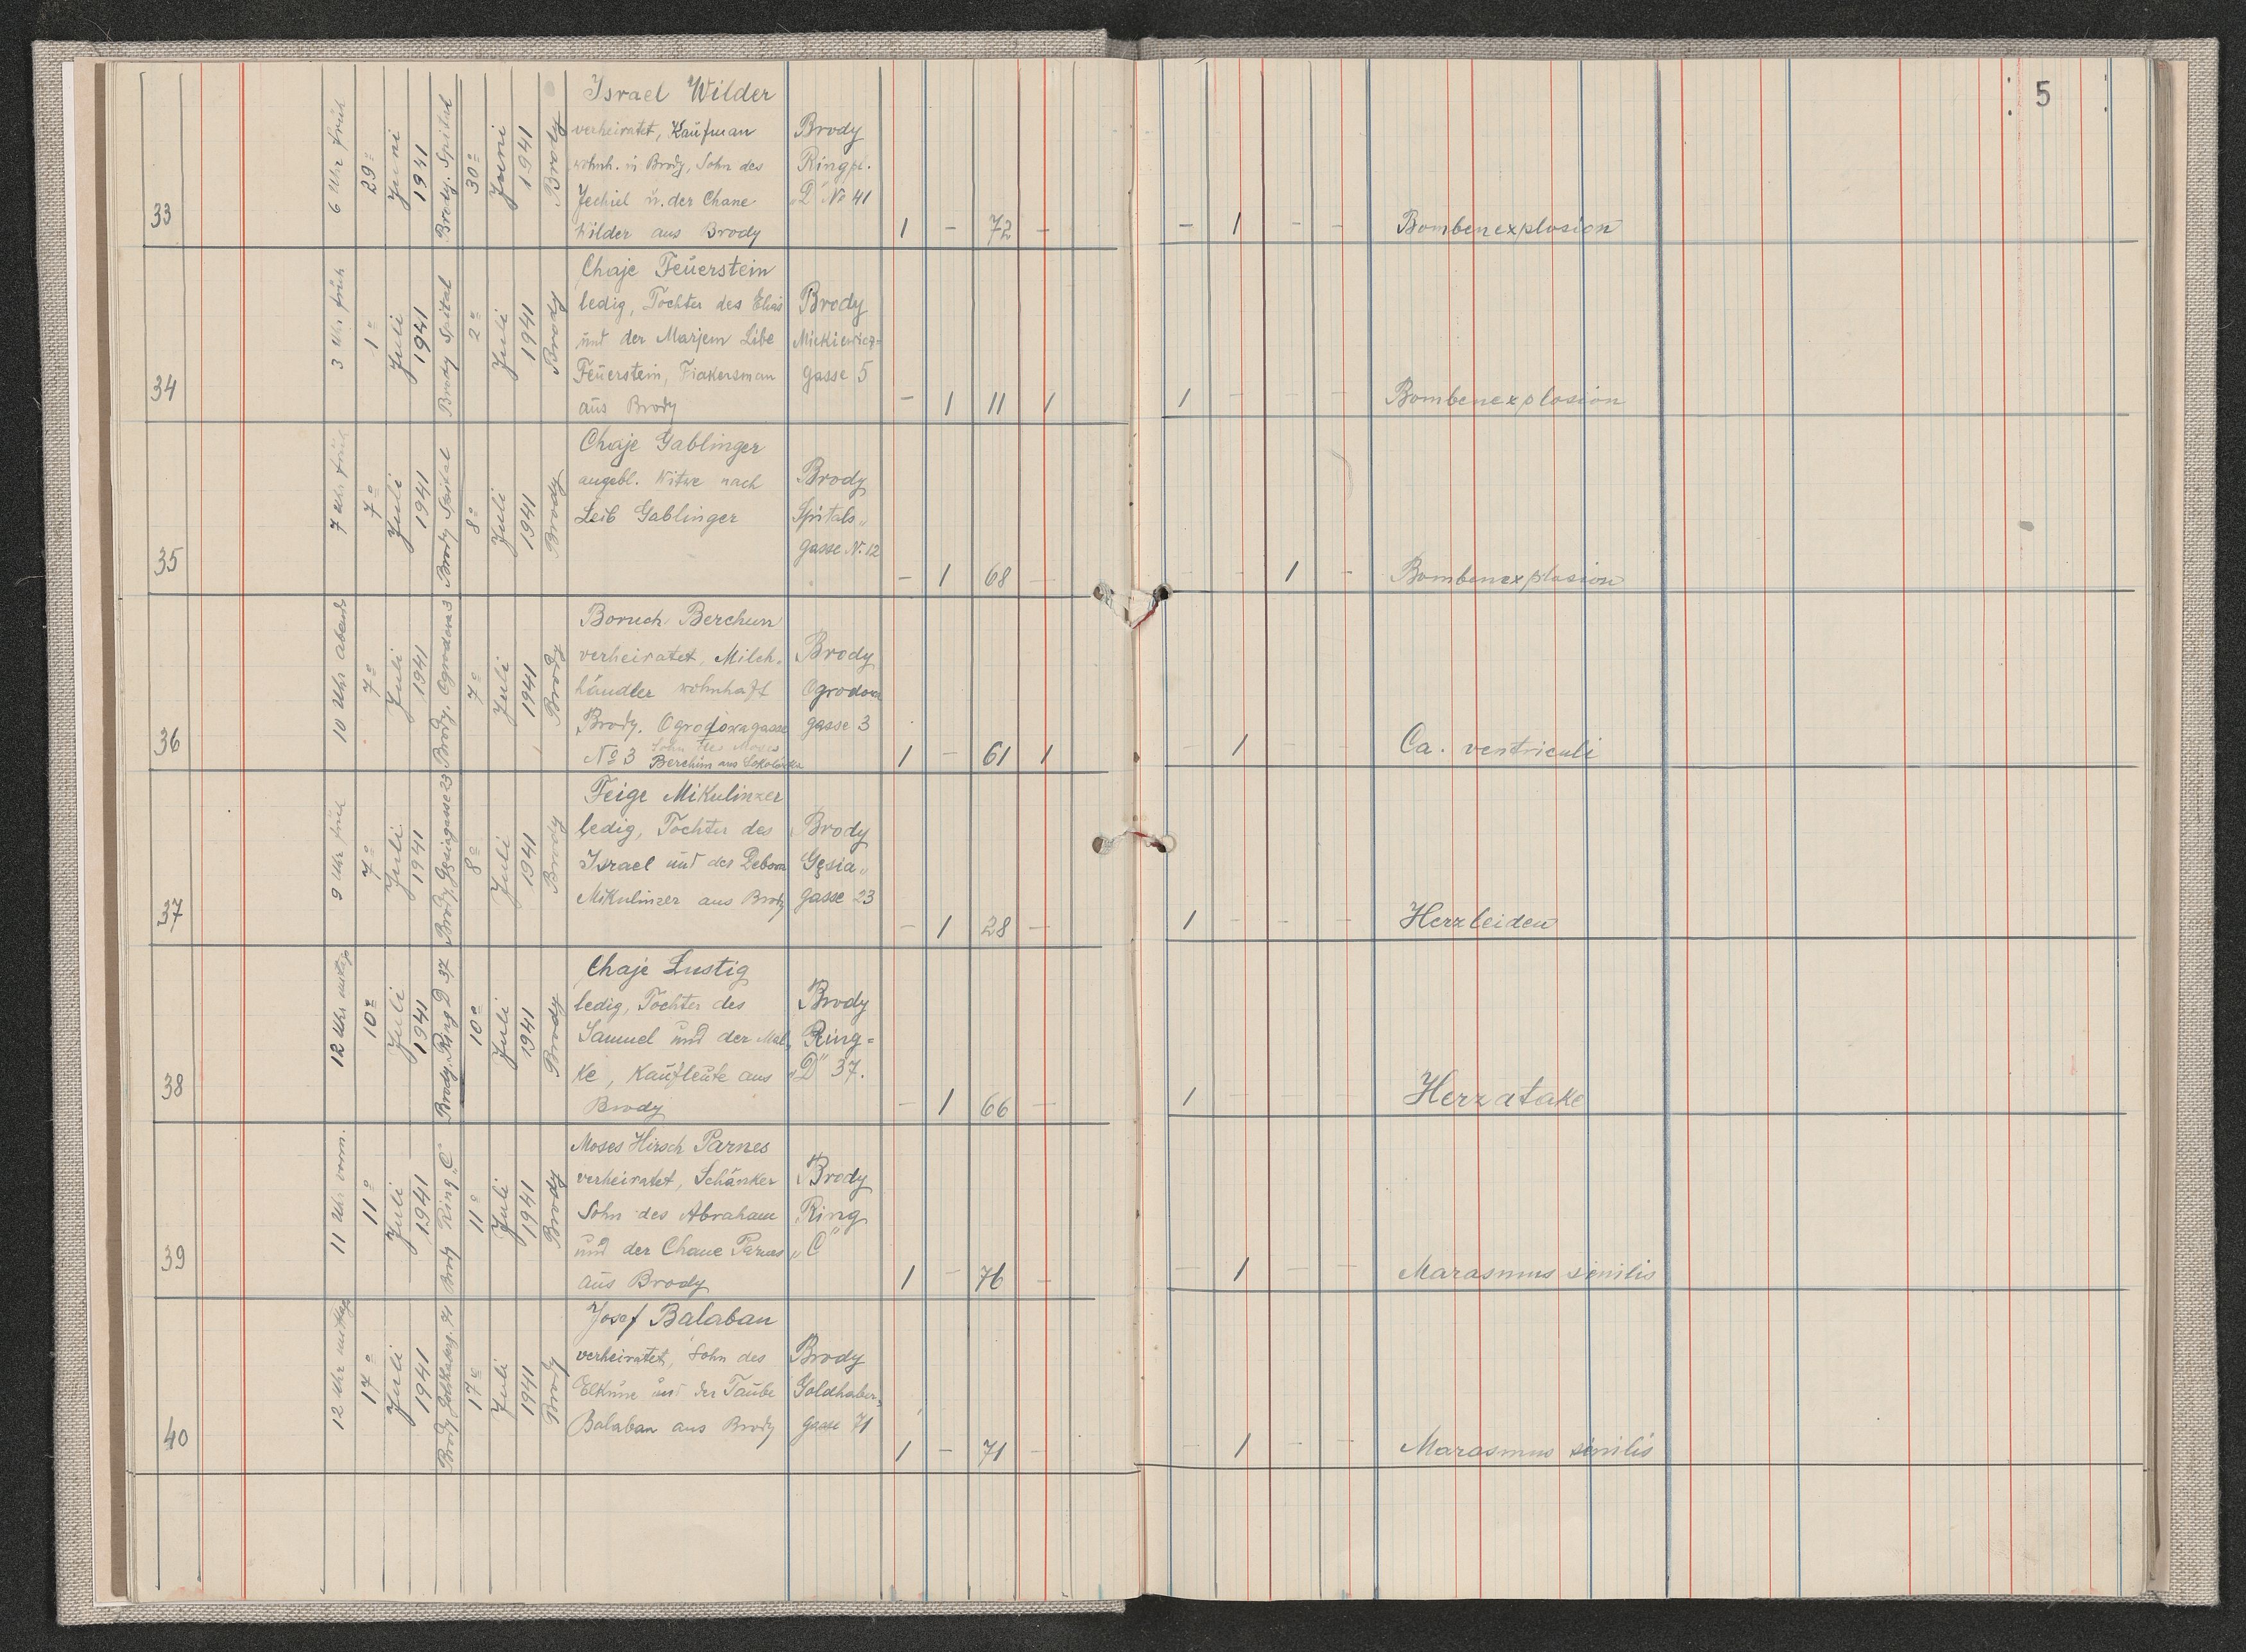 5
33
6 Uhr früh
29°
Juni
1941
Brody. Spital
30°
Juni
1941
Brody
Israel Wilder
verheiratet, Kaufman
wohnh. in Brody, Sohn des
Jechiel u. der Chane
Wilder aus Brody
Brody
Ringpl.
„D" No 41
1 - 72 -
- 1 - -
Bombenexplosion
34
3 Uhr früh
1°
Juli
1941
Brody Spital
2°
Juli
1941
Brody
Chaje Feuerstein
ledig, Tochter des Elias
und der Marjem Libe
Feuerstein, Fiakersman
aus Brody
Brody
Mickiewicz=
gasse 5
- 1 11 1
1 - - -
Bombenexplosion
35
7 Uhr früh
7°
Juli
1941
Brody Spital
8°
Juli
1941
Brody
Chaje Gablinger
angebl. Witwe nach
Leib Gablinger
Brody
Spitals„
gasse N. 12
- 1 68 -
- - 1 -
Bombenexplosion
36
10 Uhr abends
7°
Juli
1941
Brody. Ogrodowa 3
7°
Juli
1941
Brody
Boruch Berchun
verheiratet, Milch„
händler wohnhaft
Brody. Ogrodowagasse
No 3 Sohn des Moses
Berchim aus
Brody
Ogrodowa
gasse 3
1 - 61 1
- 1 -
Ca. ventriculi
37
9 Uhr früh
7°
Juli
1941
Brody, Gęsiagasse 23
8°
Juli
1941
Brody
Feige Mikulinzer
ledig, Tochter des
Israel und der Debora
Mikulinzer aus Brody
Brody
Gęsia„
gasse 23
- 1 28 -
1 - - -
Herzleiden
38
12 Uhr mittag
10°
Juli
1941
Brody. Ring D 37
10°
Juli
1941
Brody
Chaje Lustig
ledig, Tochter des
Samuel und der Mal„
ke, Kaufleute aus
Brody
Brody
Ring=
„D" 37.
- 1 66 -
1 - - -
Herzatake
39
11 Uhr vorm.
11°
Juli
1941
Brody Ring „C"
11°
Juli
1941
Brody
Moses Hirsch Parnes
verheiratet, Schänker
Sohn des Abraham
und der Chane Parnes
aus Brody
Brody
Ring
„C"
1 - 76 -
- 1 - -
Marasmus sinilis
40
12 Uhr mittag
17°
Juli
1941
Brody Goldhaberg. 71
17°
Juli
1941
Brody
Josef Balaban
verheiratet, Sohn des
Elkune und der Taube
Balaban aus Brody
Brody
Goldhaber„
gasse 71
1 - 71 -
- 1 - -
Marasmus sinilis